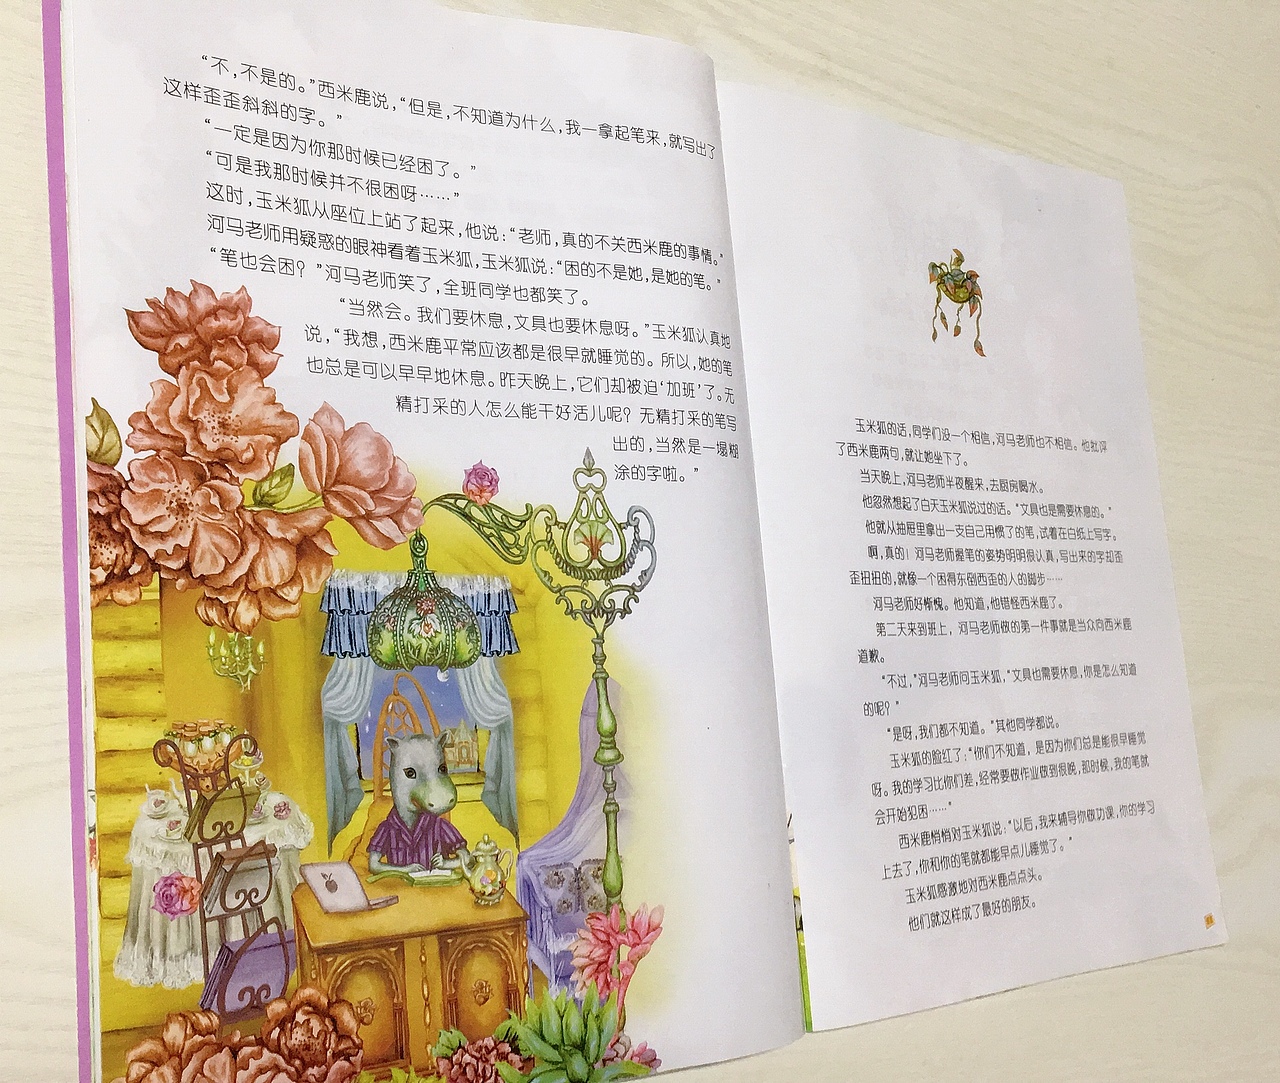 “不，不是的。”西米鹿说，“但是，不知道为什么，我一拿起笔来，就写出了
这样歪歪斜斜的字。”
“一定是因为你那时候已经困了。”
“可是我那时候并不很困呀……”
这时，玉米狐从座位上站了起来，他说：“老师，真的不关西米鹿的事情。”
河马老师用疑惑的眼神看着玉米狐，玉米狐说：“困的不是她，是她的笔。”
“笔也会困？”河马老师笑了，全班同学也都笑了。
“当然会。我们要休息，文具也要休息呀。”玉米狐认真地
说，“我想，西米鹿平常应该都是很早就睡觉的。所以，她的笔
也总是可以早早地休息。昨天晚上，它们却被迫‘加班’了。无
精打采的人怎么能干好活儿呢？无精打采的笔写
出的，当然是一塌糊
涂的字啦。”
玉米狐的话，同学们没一个相信，河马老师也不相信。他批评
了西米鹿两句，就让她坐下了。
当天晚上，河马老师半夜醒来，去厨房喝水。
他忽然想起了白天玉米狐说过的话。“文具也是需要休息的。”
他就从抽屉里拿出一支自己用惯了的笔，试着在白纸上写字。
啊，真的！河马老师握笔的姿势明明很认真，写出来的字却歪
歪扭扭的，就像一个困得东倒西歪的人的脚步……
河马老师好惭愧。他知道，他错怪西米鹿了。
第二天来到班上，河马老师做的第一件事就是当众向西米鹿
道歉。
“不过，”河马老师问玉米狐，“文具也需要休息，你是怎么知道
的呢？”
“是呀，我们都不知道。”其他同学都说。
玉米狐的脸红了：“你们不知道，是因为你们总是能很早睡觉
呀。我的学习比你们差，经常要做作业做到很晚，那时候，我的笔就
会开始犯困……”
西米鹿悄悄对玉米狐说：“以后，我来辅导你做功课，你的学习
上去了，你和你的笔就都能早点儿睡觉了。”
玉米狐感激地对西米鹿点点头。
他们就这样成了最好的朋友。